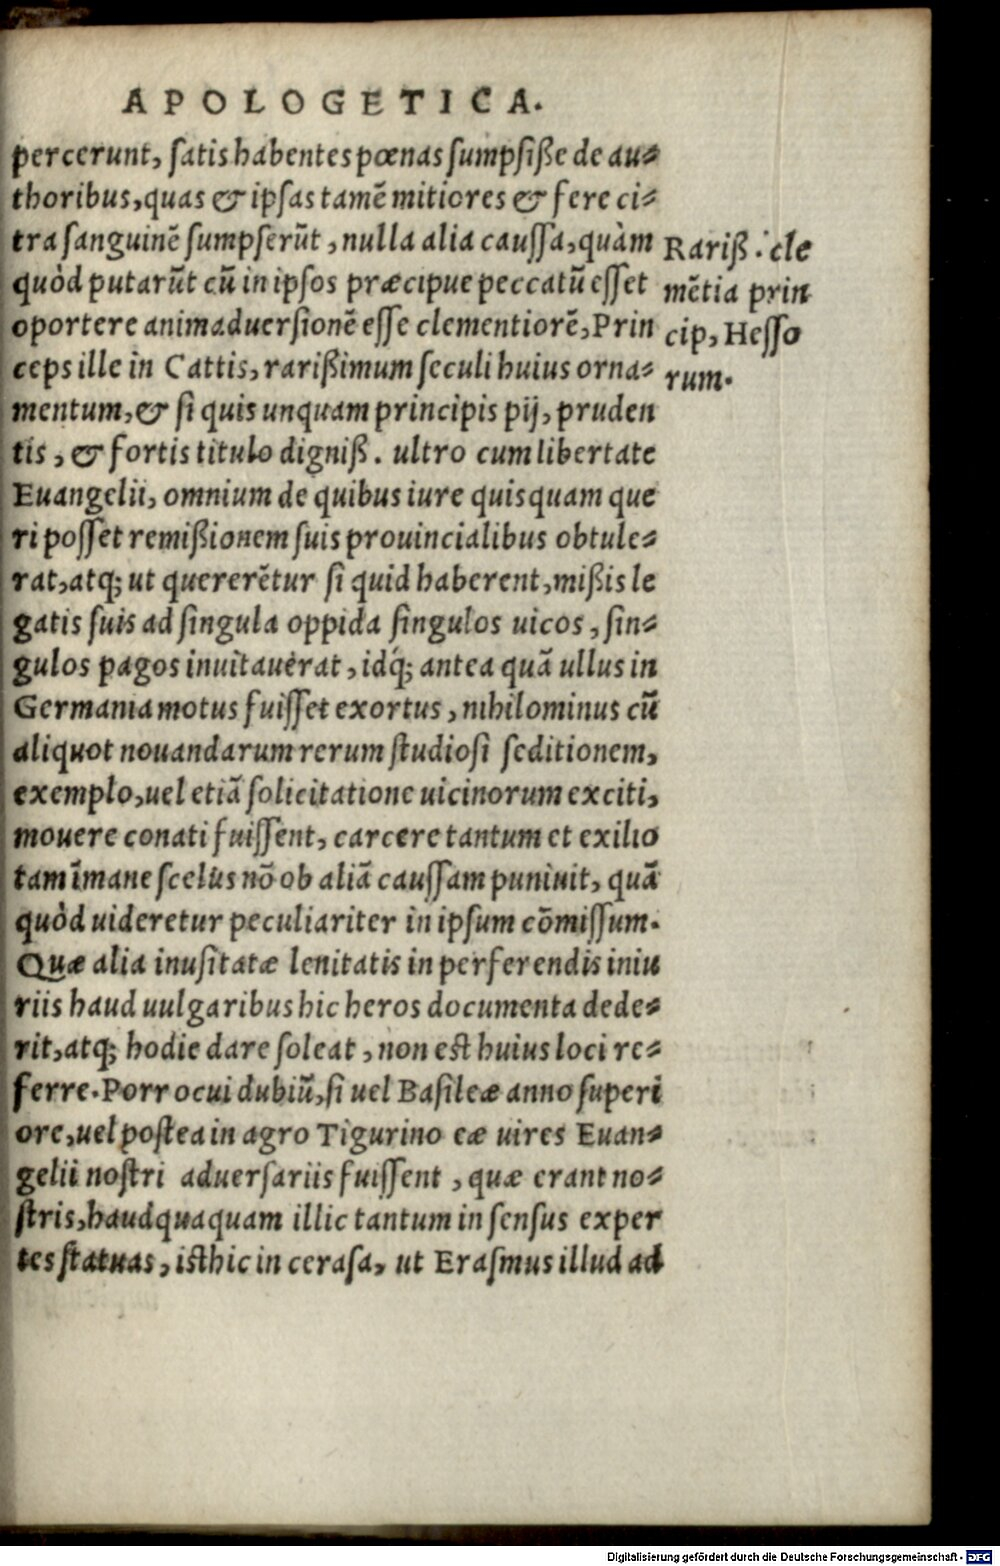 APOLOGETICA.
percerunt, ſatis habentes pœnas ſumpſiße de au⸗
thoribus, quas & ipſas tamē mitiores & fere ci⸗
tra ſanguinē ſumpſerūt, nulla alia cauſſa, quàm
quòd putarūt cū in ipſos præcipue peccatū eſſet
oportere animaduerſionē eſſe clementiorē, Prin
ceps ille in Cattis, rarißimum ſeculi huius orna⸗
mentum, & ſi quis unquam principis pij, pruden
tis, & fortis titulo digniß. ultro cum libertate
Euangelii, omnium de quibus iure quisquam que
ri poſſet remißionem ſuis prouincialibus obtule⸗
rat, atq; ut quererētur ſi quid haberent, mißis le
gatis ſuis ad ſingula oppida ſingulos uicos, ſin⸗
gulos pagos inuitauerat, idq́; antea quā ullus in
Germania motus fuiſſet exortus, nihilominus cū
aliquot nouandarum rerum ſtudioſi ſeditionem,
exemplo, uel etiā ſolicitatione uicinorum exciti,
mouere conati fuiſſent, carcere tantum et exilio
tam īmane ſcelus nō ob aliā cauſſam puniuit, quā
quòd uideretur peculiariter in ipſum cōmiſſum.
Quæ alia inuſitatæ lenitatis in perferendis iniu
riis haud uulgaribus hic heros documenta dede⸗
rit, atq; hodie dare ſoleat, non eſt huius loci re⸗
ferre. Porro cui dubiū, ſi uel Baſileæ anno ſuperi
ore, uel poſtea in agro Tigurino eæ uires Euan⸗
gelii noſtri aduerſariis fuiſſent, quæ erant no⸗
ſtris, haudquaquam illic tantum in ſenſus exper
tes ſtatuas, iſthic in ceraſa, ut Eraſmus illud ad
Rariß. cle
mētia prin
cip, Heſſo
rum.
Digitalisierung gefördert durch die Deutsche Forschungsgemeinschaft - DFG